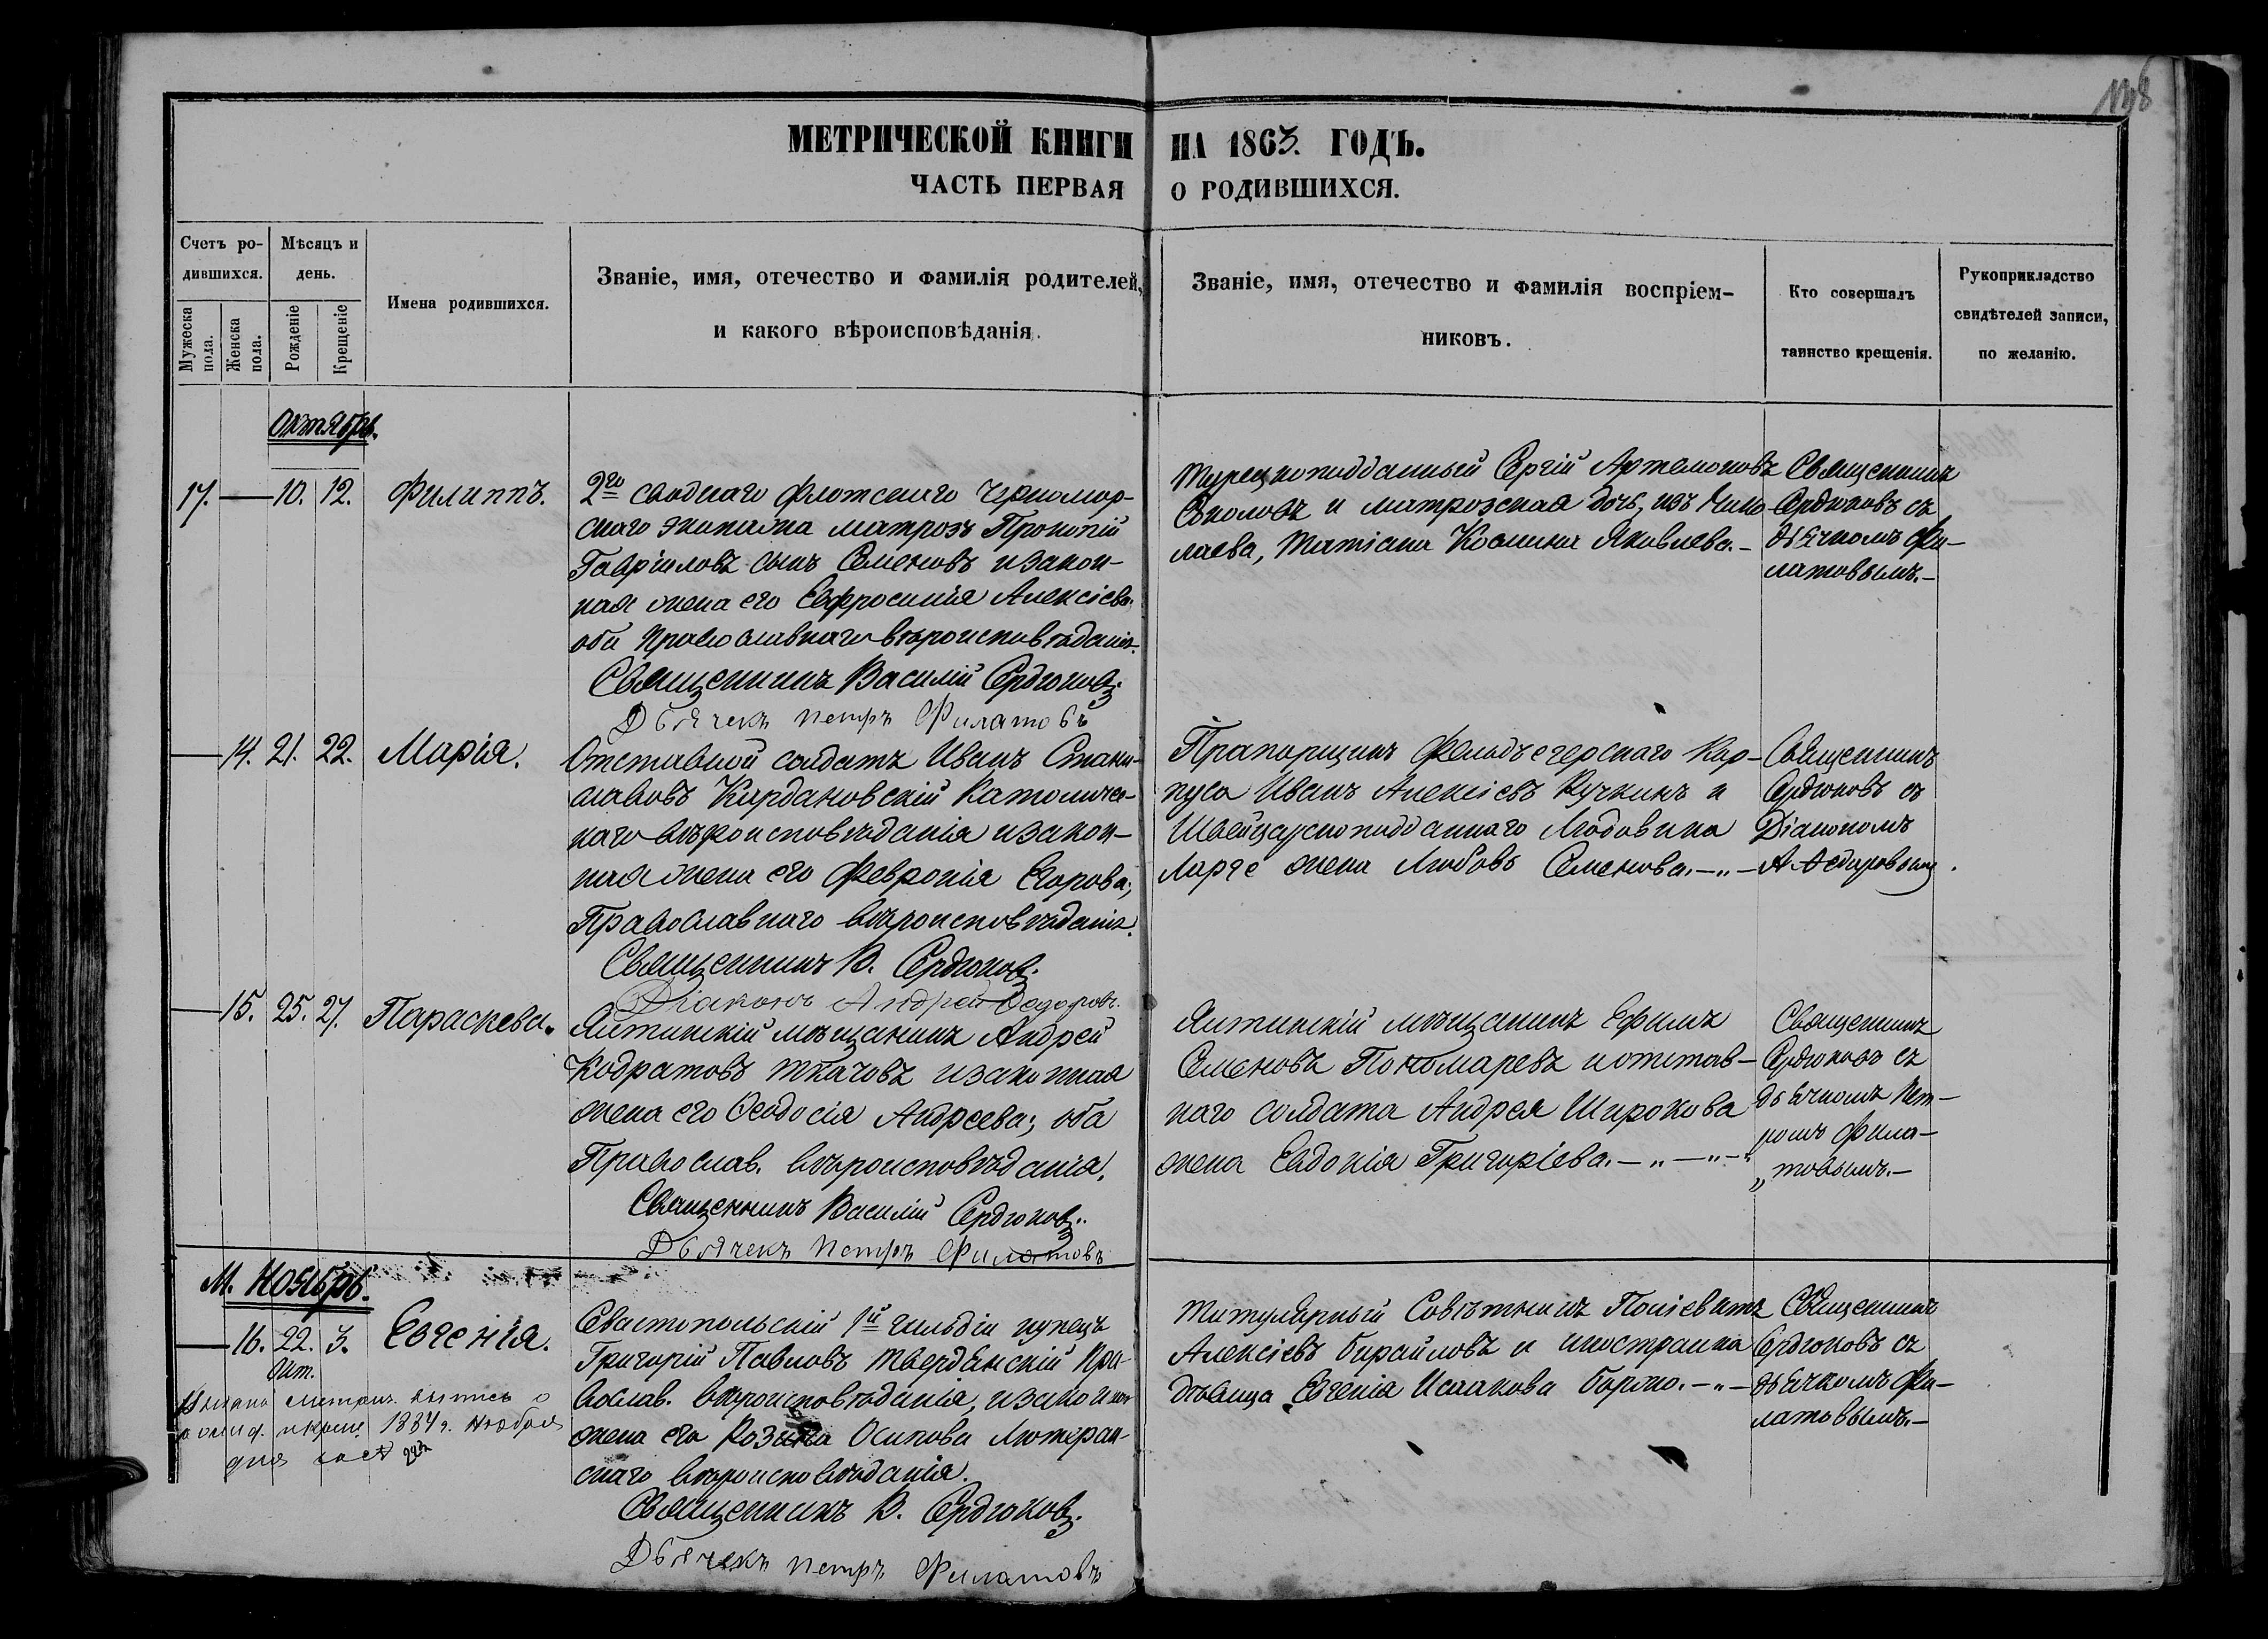 118
МЕТРИЧЕСКОЙ КНИГИ НА 1863. ГОДЪ.
ЧАСТЬ ПЕРВАЯ О РОДИВШИХСЯ.
Счетъ ро-
дившихся.
Мужеска пола.
Женска пола.
Мѣсяцъ и
день.
Рожденіе
Крещеніе
Имена родившихся.
Званіе, имя, отечество и фамилія родителей,
и какого вѣроисповѣданія.
Званіе, имя, отечество и фамилія воспріем-
никовъ.
Кто совершалъ
таинство крещенія.
Рукоприкладство
свидѣтелей записи,
по желанію.
Октябрь.
17. — 10. 12. Филиппъ.
2го своднаго флотскаго Черномор-
скаго экипажа матрозъ Прокопій
Гавріиловъ сынъ Семеновъ и закон-
ная жена его Евфросинія Алексіева.
оба Православнаго вѣроисповѣданія.
Священникъ Василій Сердюковъ.
Дьячекъ Петръ Филатовъ
Турецкоподданный Сергій Артемоновъ
Соколовъ и матрозская дочь, изъ Нико-
лаева, Татіана Космина Яковлева.—
Священникъ
Сердюковъ съ
дьячкомъ Фи-
латовымъ.—
— 14. 21. 22. Марія.
Отставной солдатъ Иванъ Стани-
славовъ Кардановскій Католичес-
каго вѣроисповѣданія и закон-
ная жена его Февронія Егорова;
Православнаго вѣроисповѣданія.
Священникъ В. Сердюковъ.
Діаконъ Андрей Ѳедоровъ.
Прапорщикъ Фельдъегерскаго Кор-
пуса Иванъ Алексіевъ Кучкинъ и
Швейцарскоподданнаго Людовика
Ларге жена Любовь Семенова.—"—
Священникъ
Сердюковъ съ
Діакономъ
А. Ѳедоровымъ.
— 15. 25. 27. Параскева.
Ялтинскій мѣщанинъ Андрей
Кодратовъ Ткачовъ и законная
жена его Ѳеодосія Андреева; оба
Православ. вѣроисповѣданія.
Священникъ Василій Сердюковъ.
Дьячекъ Петръ Филатовъ
Ялтинскій мѣщанинъ Ефимъ
Семеновъ Пономаревъ и отстав-
наго солдата Андрея Широкова
жена Евдокія Григоріева.—"—"—"
Священникъ
Сердюковъ съ
дьячкомъ Пет-
ромъ Фила-
„товымъ.—
М. Ноябрь.
— 16. 22. 3. Евгенія.
Окт.
метрич. выпись о
рожд. и крещ. 1884 г. Ноября
дня
Севастопольскій 1й гильдіи купецъ
Григорій Павловъ Твердянскій Пра-
вослав. вѣроисповѣданія, и законная
жена его Розина Осипова Лютеран-
скаго вѣроисповѣданія.
Священникъ В. Сердюковъ.
Дьячекъ Петръ Филатовъ
Титулярный Совѣтникъ Поліевктъ
Алексіевъ Бирайловъ и иностранка
дѣвица Евгенія Исаакова Боржо.—"—
Священникъ
Сердюковъ съ
дьячкомъ Фи-
латовымъ.—